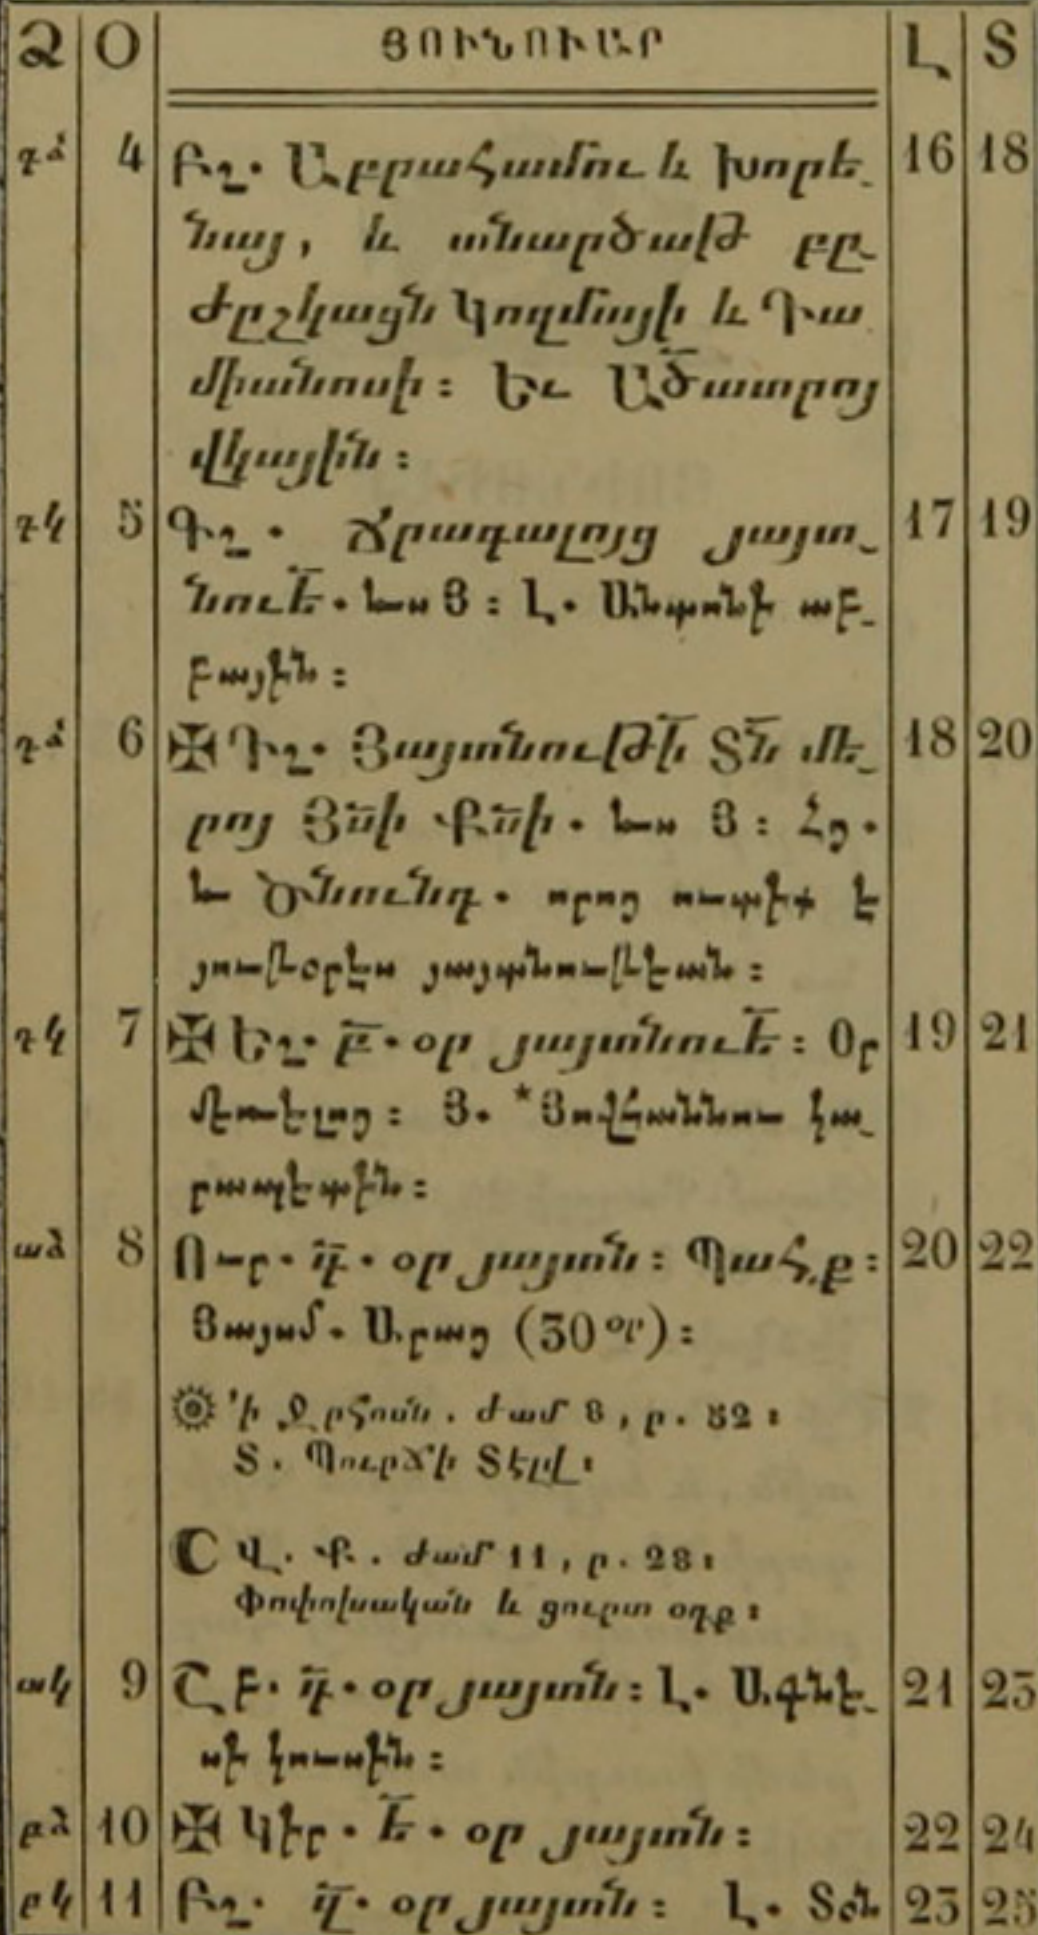 Ձ Օ ՅՈՒՆՈՒԱՐ Լ Տ
դձ 4 Բշ. Աբրահամու և Խորե֊ 16 18
նայ, և անարծաթ բը֊
ժըշկացն Կոզմայի և Դա
միանոսի։ Եւ Ած̅ատրոյ
վկային։
դկ 5 Գշ. Ճրագալոյց յայտ֊ 17 19
նուե̅. ևս Յ։ Լ. Անտոնի աբ֊
բային։
դձ 6 ✠ Դշ. Յայտնութի̅ Տն̅ մե֊ 18 20
րոյ Յս̅ի Քս̅ի. ևս Յ։ Հց.
և Ծնունդ. որոց ուտիք է
յութօրէս յայտնութեան։
դկ 7 ✠ Եշ. բ̅. օր յայտնուե̅։ Օր 19 21
մեռելոց։ Յ. *Յովհաննու կա֊
րապետին։
աձ 8 Ուր. գ̅. օր յայտն։ Պահք։ 20 22
Յայսմ. Արաց (30 օր)։
՚ի Ջրհոսն. ժամ 8, ր. 52։
Տ. Պուրճի Տէլվ։
Վ. Ք. ժամ 11, ր. 28։
Փոփոխական և ցուրտ օդք։
ակ 9 Շբ. դ̅. օր յայտն։ Լ. Ագնե֊ 21 23
սի կուսին։
բձ 10 ✠ Կիր. ե̅. օր յայտն։ 22 24
բկ 11 Բշ. զ̅. օր յայտն։ Լ. Տօն 23 25